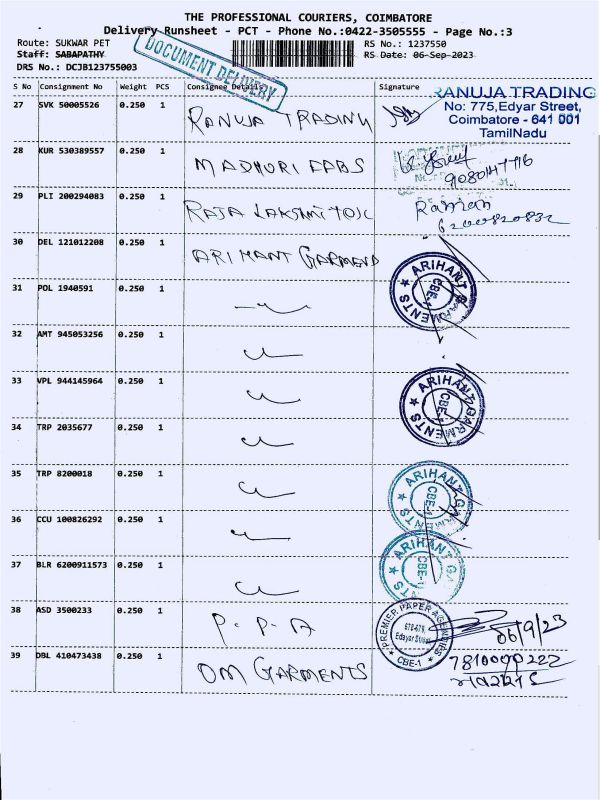 THE PROFESSIONAL COURIERS, COIMBATORE
Delivery Runsheet - PCT - Phone No.:0422-3505555 - Page No.:3
Route: SUKWAR PET RS No.: 1237550
Staff: SABAPATHY RS Date: 06-Sep-2023
DRS No.: DCJB123755003
DOCUMENT DELIVERY
S No Consignment No Weight PCS Consignee Details Signature
27 SVK 50005526 0.250 1 RANUJA TRADING
RANUJA TRADING
No: 775,Edyar Street,
Coimbatore - 641 001
TamilNadu
28 KUR 530389557 0.250 1 MADHURI FABS
29 PLI 200294083 0.250 1 RAJA LAKSHMI
6200820832
30 DEL 121012208 0.250 1 ARIHANT GARMEND
ARIHANT GARMENTS
CBE-1
31 POL 1940591 0.250 1
32 AMT 945053256 0.250 1
33 VPL 944145964 0.250 1
ARIHANT GARMENTS
CBE-1
34 TRP 2035677 0.250 1
35 TRP 8200018 0.250 1
ARIHANT GARMENTS
CBE-1
36 CCU 100826292 0.250 1
37 BLR 6200911573 0.250 1
ARIHANT GA
CBE-1
38 ASD 3500233 0.250 1 P.P.A
PREMIER PAPER AGENCIES
Edayar Street
CBE-1
06/9/23
39 DBL 410473438 0.250 1 OM GARMENTS
7810090222